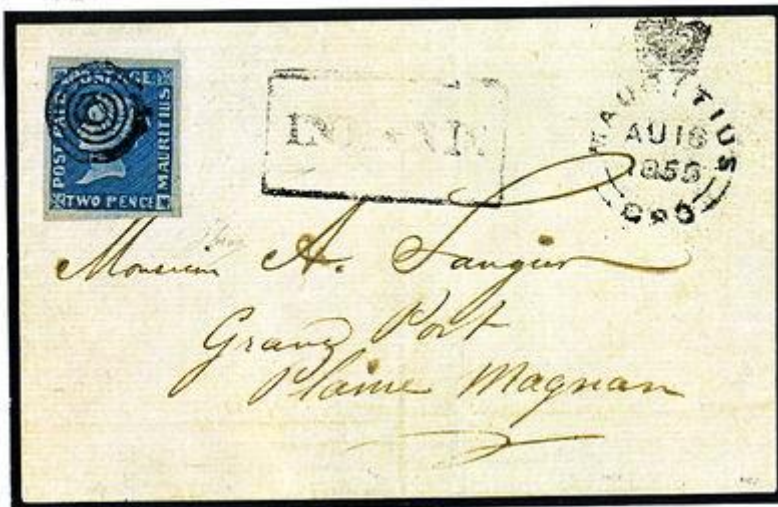 POSTAGE
POST PAID
MAURITIUS
TWO PENCE
INLAND
MAURITIUS
AU 18
GPO
Monsieur A.
Grand Port
Plaine Magnan